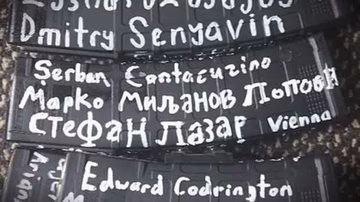 Dmitry Senyavin
Şerban Cantacuzino
Марко Миљанов Попови
СТЕФАН ЛАЗАР Vienna
Edward Codrington